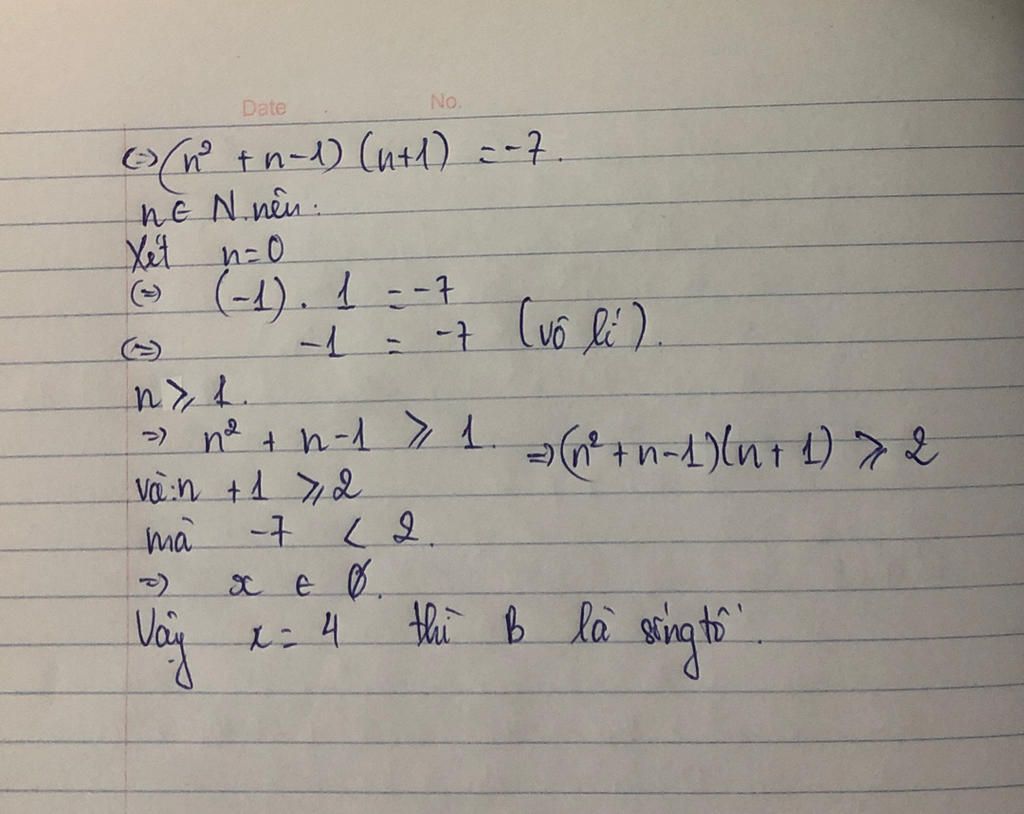 Date No.
(=) (n² + n-1) (n+1) = -7.
n ∈ N. nên:
Xét n=0
(=) (-1) . 1 = -7
(=) -1 = -7 (vô lí).
n ⩾ 1.
=) n² + n-1 ⩾ 1. =) (n² + n-1)(n+1) ⩾ 2
và: n + 1 ⩾ 2
mà -7 < 2.
=) x ∈ ∅.
Vậy x = 4 thì B là số ng tố.